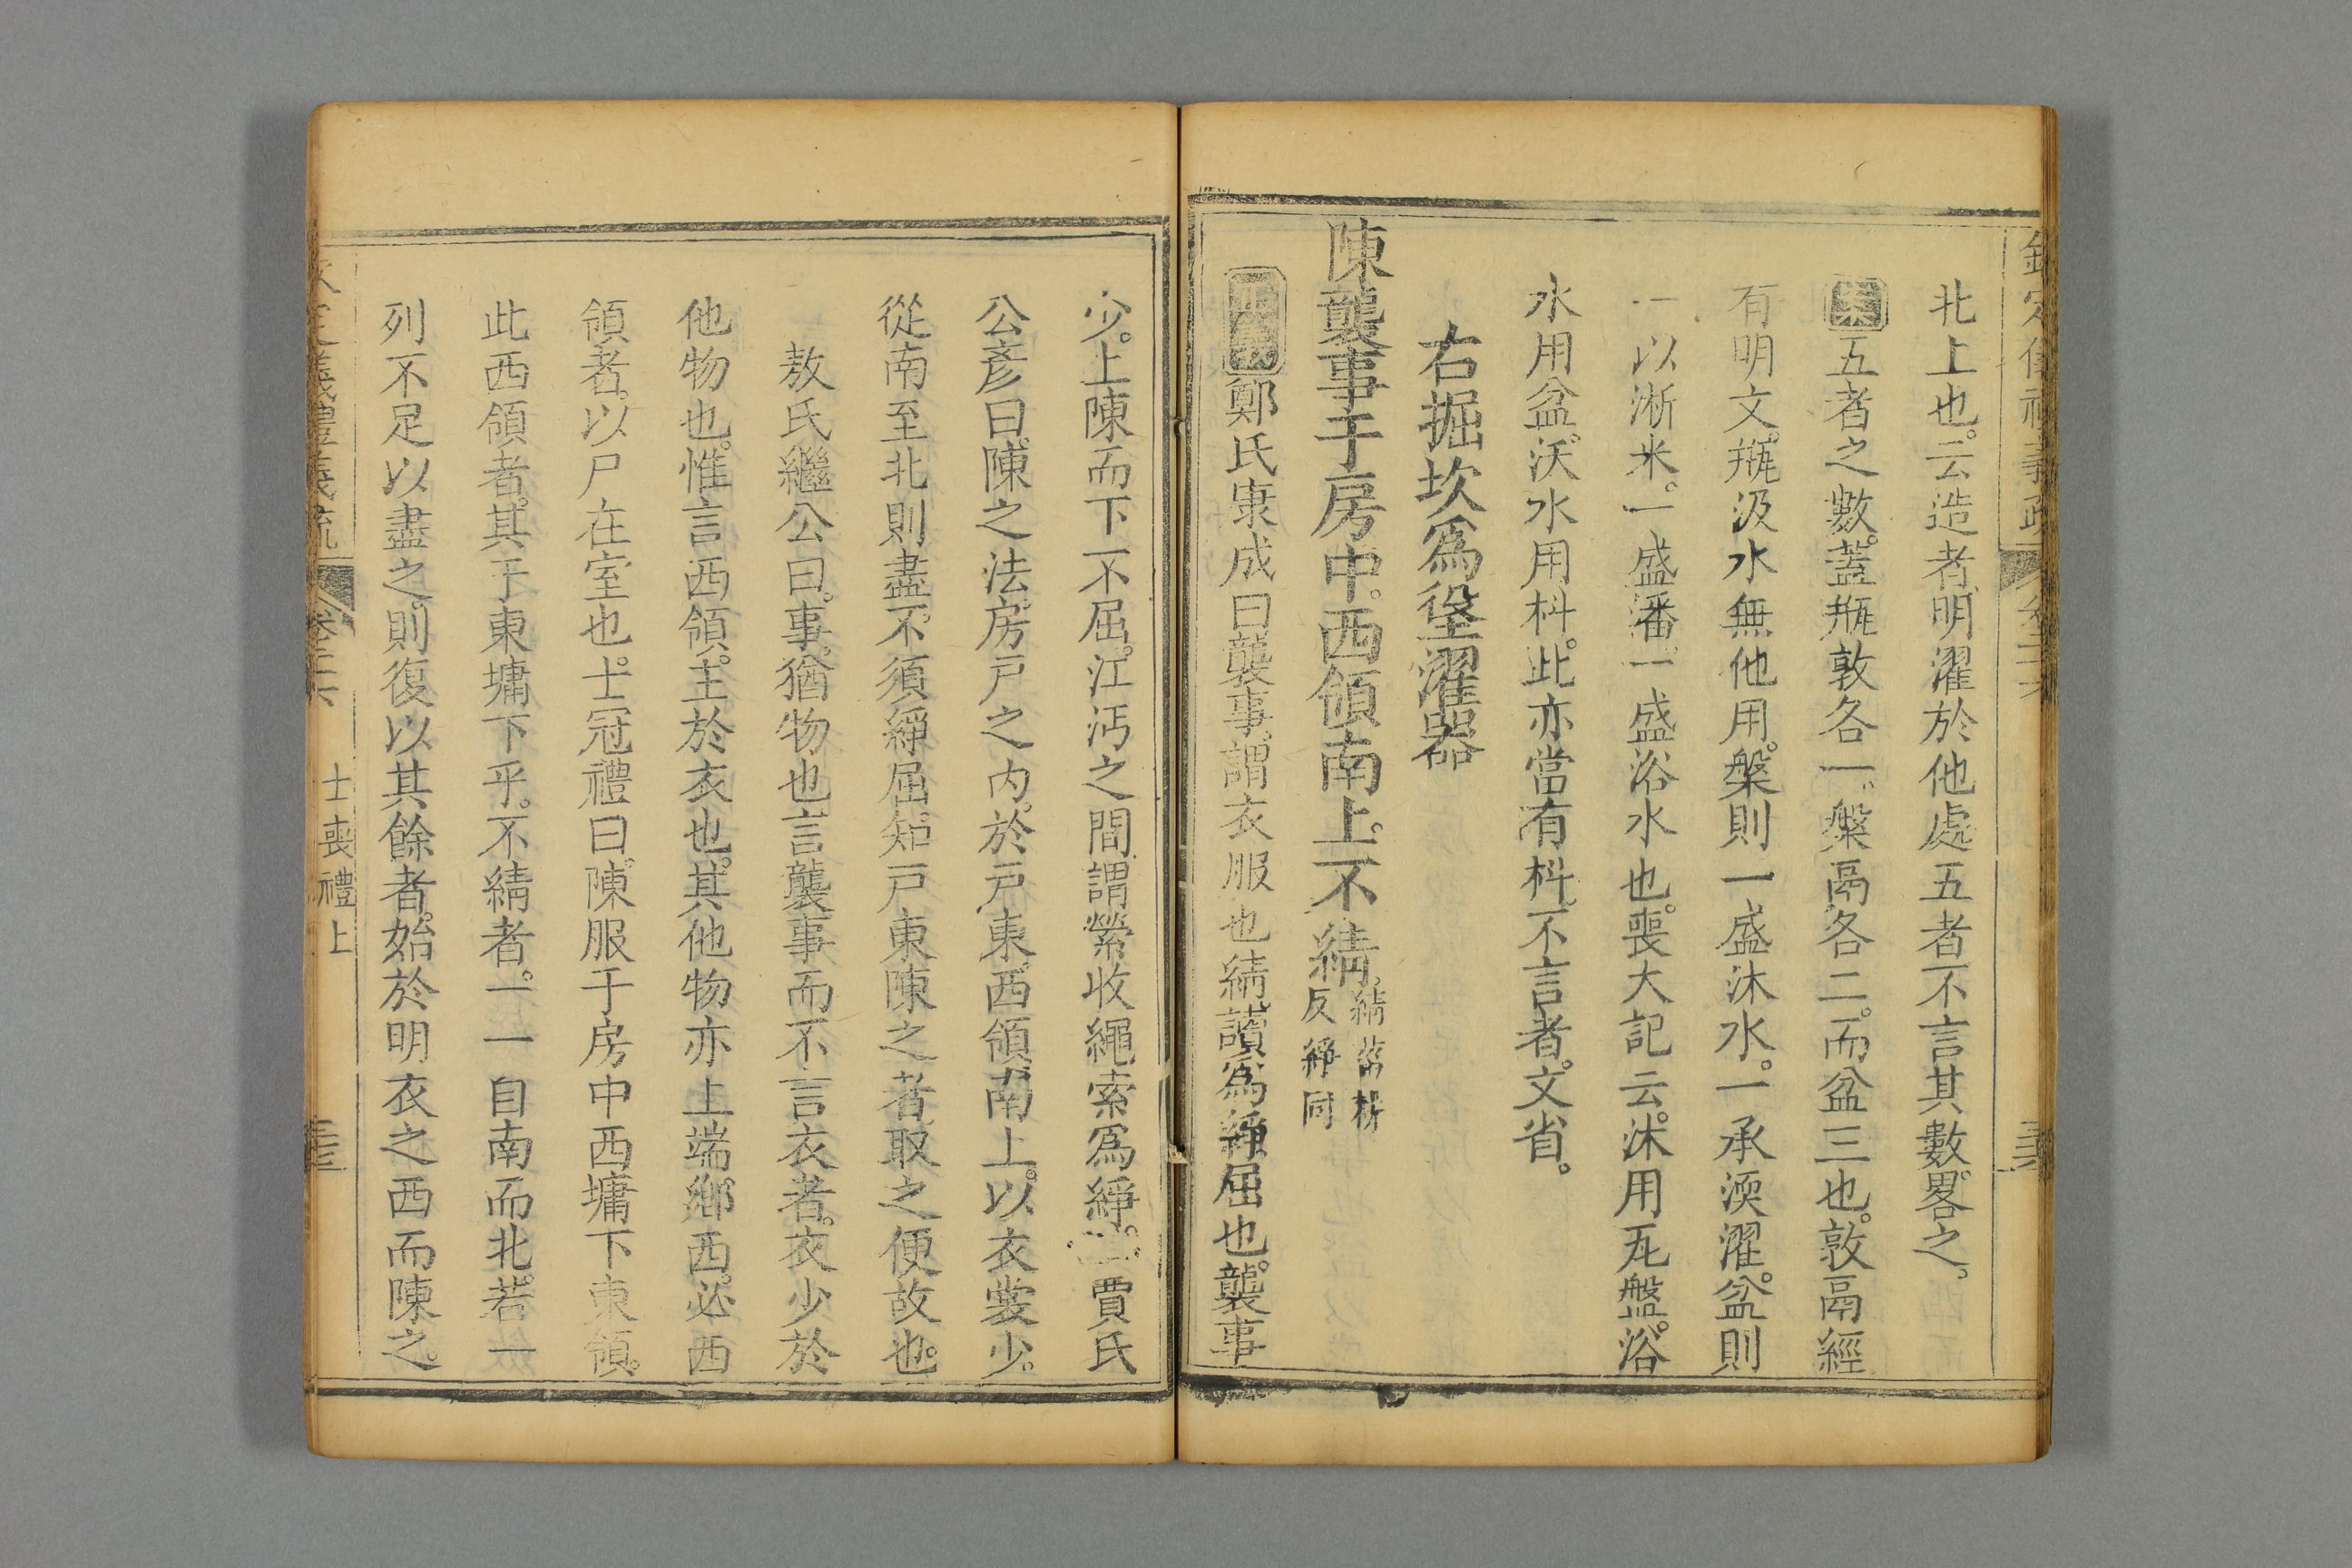 北上也。云造者、明濯於他處。五者不言其數、畧之。
案五者之數、蓋甁敦各一、槃鬲各二、而盆三也。敦鬲經
有明文。甁汲水、無他用。槃則一盛沐水。一承渜濯。盆則
一以淅米。一盛潘、一盛浴水也。喪大記云。沐用瓦盤。浴
水用盆。沃水用枓。此亦當有枓。不言者。文省。
右掘坎爲垼濯器
陳襲事于房中。西領南上。不綪。綪、菑耕反綪同
正義鄭氏康成曰襲事、謂衣服也。綪、讀爲絣、屈也。襲事
少。上陳而下不屈。江沔之間、謂縈收繩索爲絣。賈氏
公彥曰。陳之法、房戸之内。於戸東、西領南上。以衣裳少。
從南至北則盡、不須絣屈。知戸東陳之者、取之便故也。
敖氏繼公曰。事、猶物也。言襲事而不言衣者。衣少於
他物也。惟言西領。主於衣也。其他物亦上端鄕西。必西
領者。以尸在室也。士冠禮曰。陳服于房中西墉下東領。
此西領者。其于東墉下乎。不綪者。一一自南而北。若一
列不足以盡之。則復以其餘者。始於明衣之西而陳之。
士喪禮上